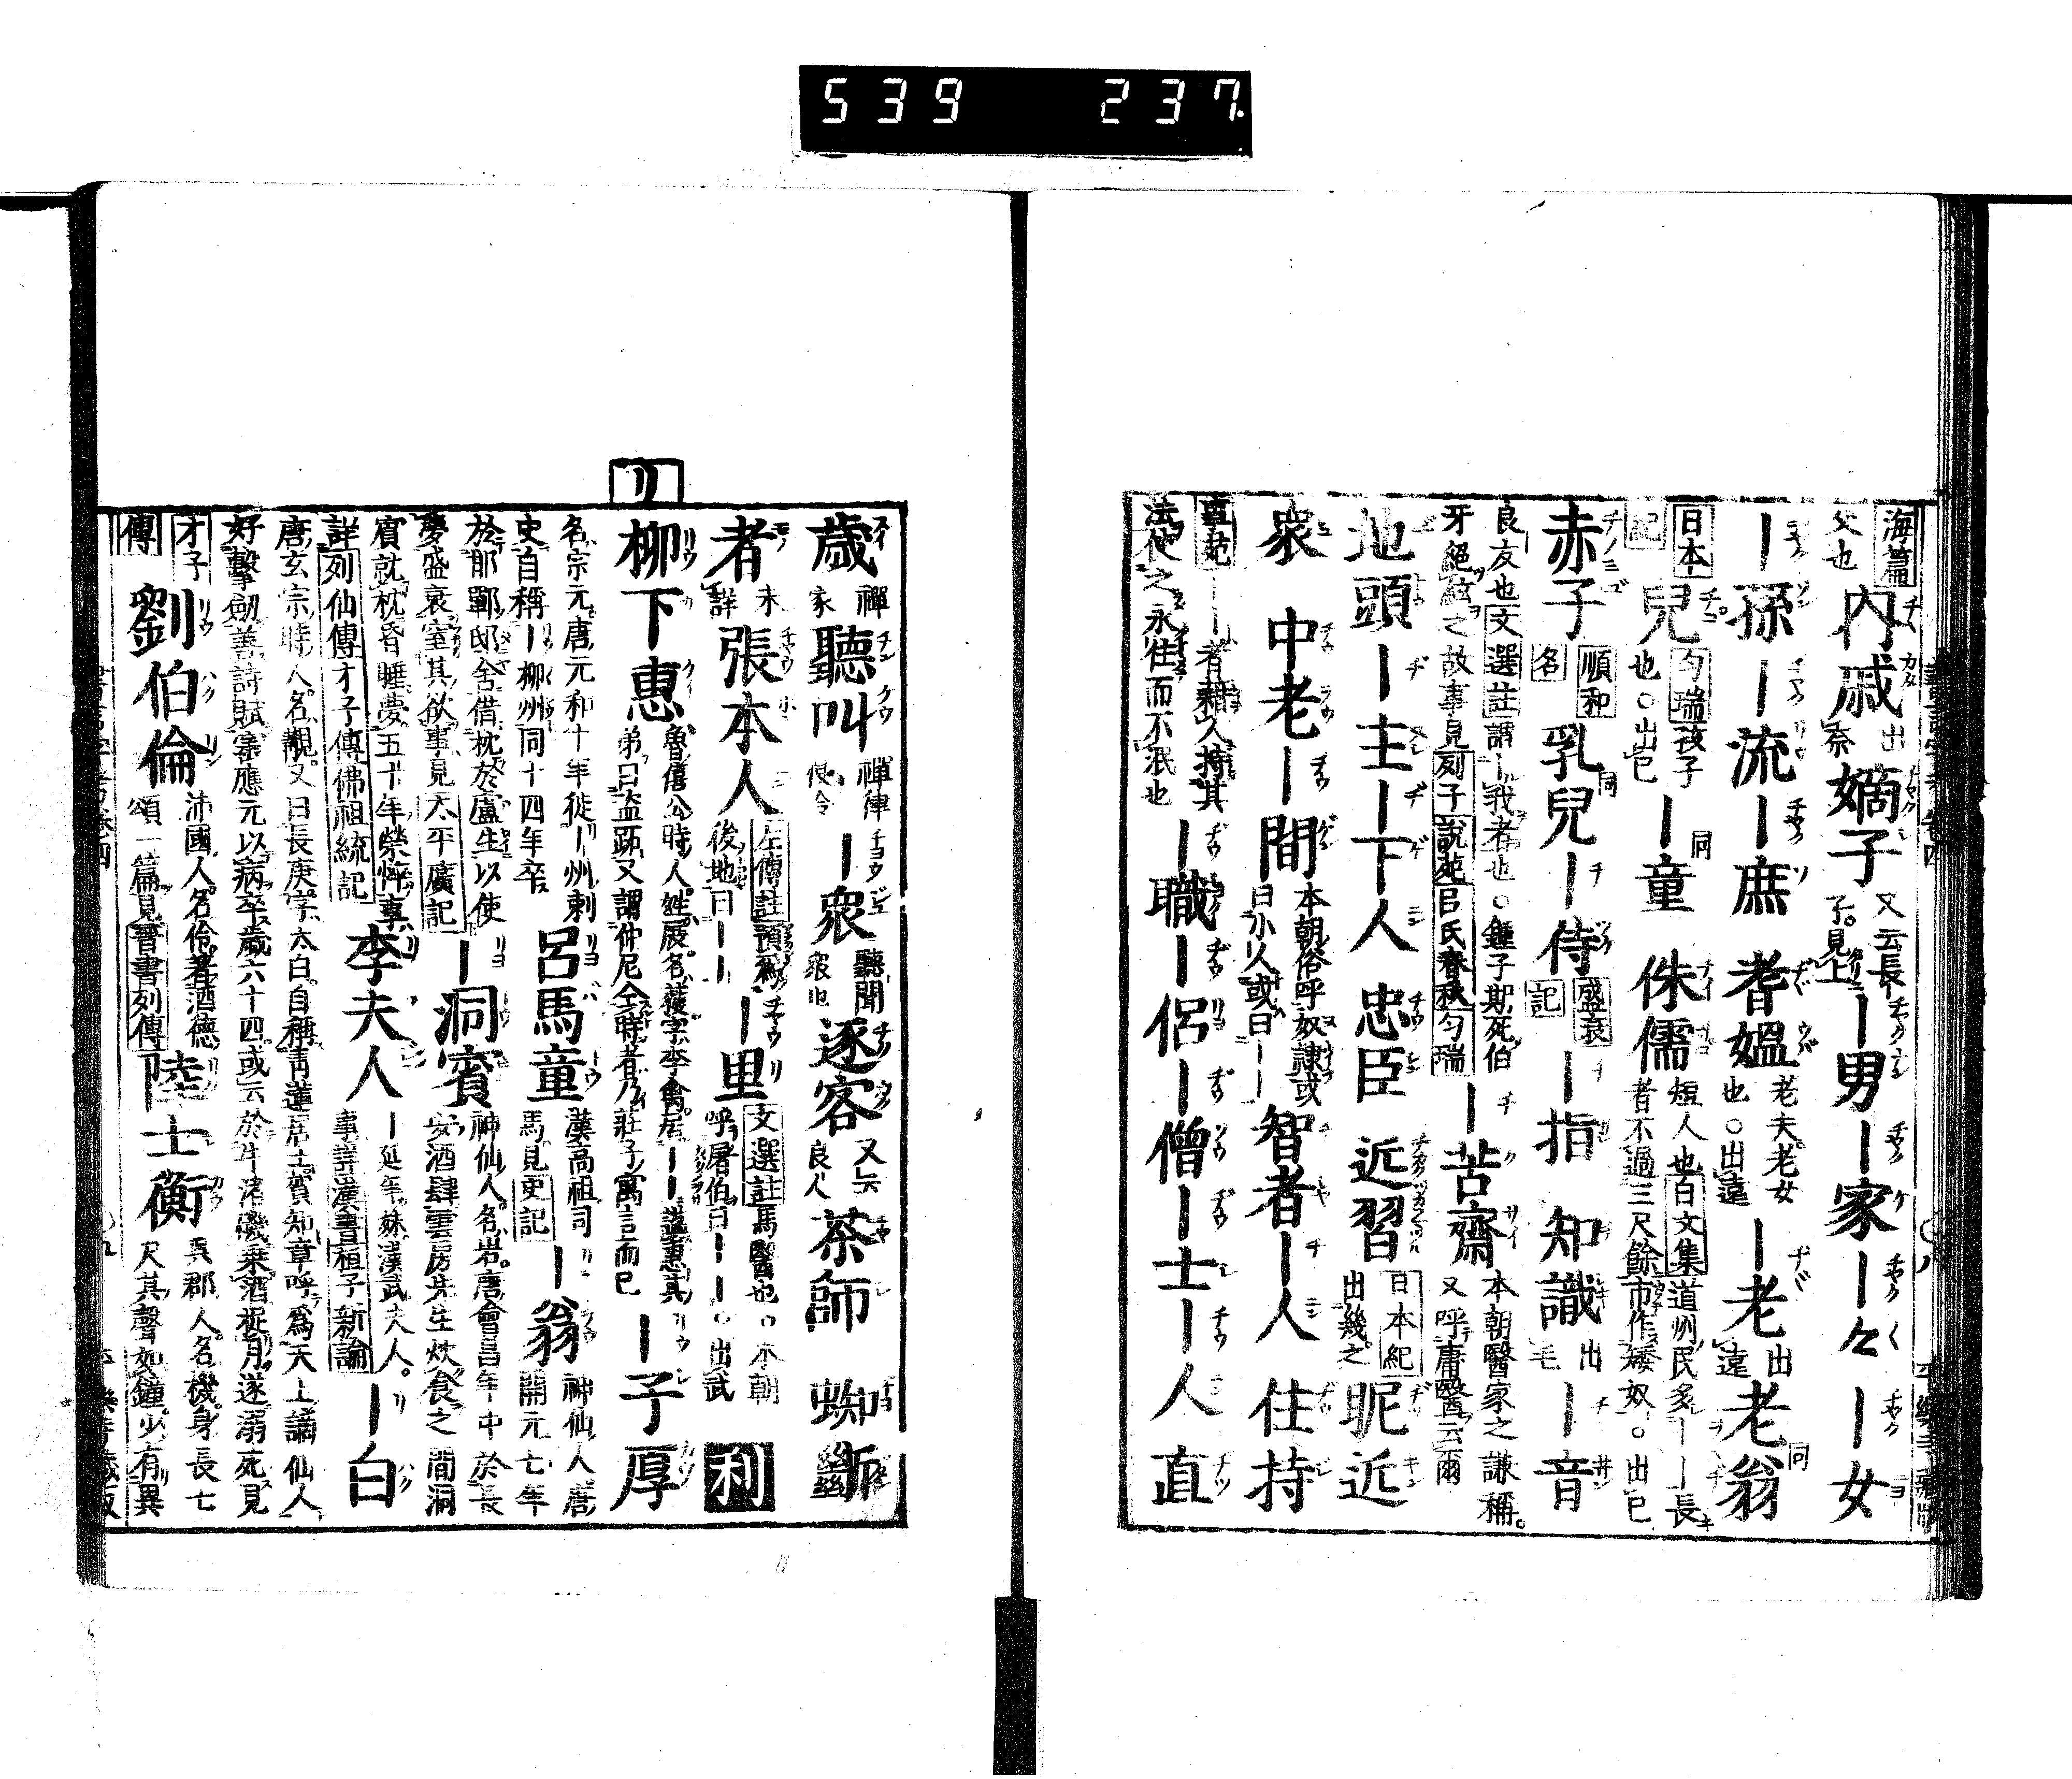 539 237
海篇
父也 內戚 出奈 嫡子 又云長子。見上 ｜男 ｜家 ｜々 ｜女
｜孫 ｜流 ｜庶 耆媼 老夫老女也○出遠 ｜老 出遠 老翁 同
日本紀 兒 勻瑞孩子也○出巳 ｜童 同 侏儒 短人也白文集道州民多｜｜長者不過三尺餘市作矮奴○出巳
赤子 順和名 乳兒 同 ｜侍 盛衰記 ｜指 知識 出毛 ｜音
良友也文選註謂｜我者也○鍾子期死伯牙絕絃之故事見列子說苑呂氏春秋勻瑞 ｜苦齋 本朝醫家之謙稱。又呼庸醫云爾
地頭 ｜主 ｜下 ｜人 忠臣 近習 日本紀出幾之 昵近
衆 中老 ｜間 本朝俗呼奴隷或曰小人或曰｜｜ 智者 ｜人 住持
｜｜者藉人持其法使之永住而不泯也 ｜職 ｜侶 ｜僧 ｜士 ｜人 直
歲 禪家 聽叫 禪律 ｜衆 聽聞衆也 逐客 又云良人 茶師 蜘斷
者 末詳 張本人 左傳註預為後地曰｜｜ ｜里 文選註馬醫也○本朝呼屠伯曰｜｜○出武 利
リ
柳下惠 魯僖公時人姓展名獲字李禽居｜｜謚惠其弟曰盗跖又謂仲尼仝時者乃莊子寓言而已 ｜子厚
名宗元唐元和十年徙｜州刺史自稱｜柳州同十四年卒 呂馬童 漢高祖司馬見史記 ｜翁 神仙人唐開元七年
於邯鄲邸舍借枕於盧生以使夢盛衰窒其欲事見太平廣記 ｜洞賓 神仙人名岩唐會昌年中於長安酒肆雲房先生炊食之間洞
賓就枕昏睡夢五十年榮悴事詳列仙傳才子傳佛祖統記 李夫人 ｜延年妹漢武夫人。事詳漢書桓子新論 ｜白
唐玄宗時人名覯又曰長庚字太白自稱靑蓮居士賀知章呼為天上謫仙人
好擊劒善詩賦寀應元以病卒歲六十四或云於牛渚磯乗酒捉月遂溺死見
才子傳 劉伯倫 沛國人名伶著酒德頌一篇見晉書列傳 陸士衡 吳郡人名機身長七尺其聲如鐘少有異